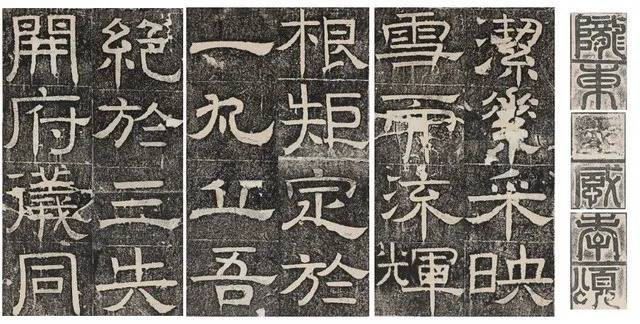 隴東王感孝頌
潔粲采映
雪流輝
根矩定於
一丸丘吾
絕於三失
開府儀同